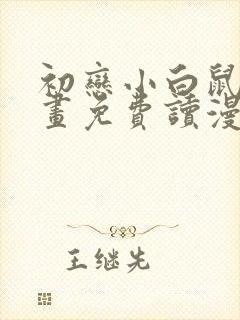 初戀小白鼠
畫免費讀漫
王继先